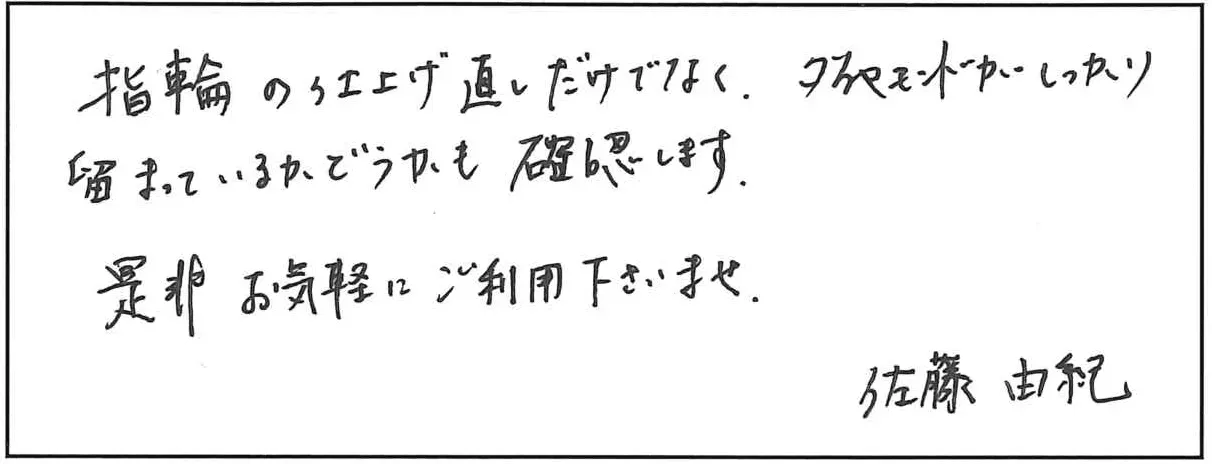 指輪の仕上げ直しだけでなく、ダイヤモンドがしっかり
留まっているかどうかも確認します。
是非お気軽にご利用下さいませ。
佐藤由紀